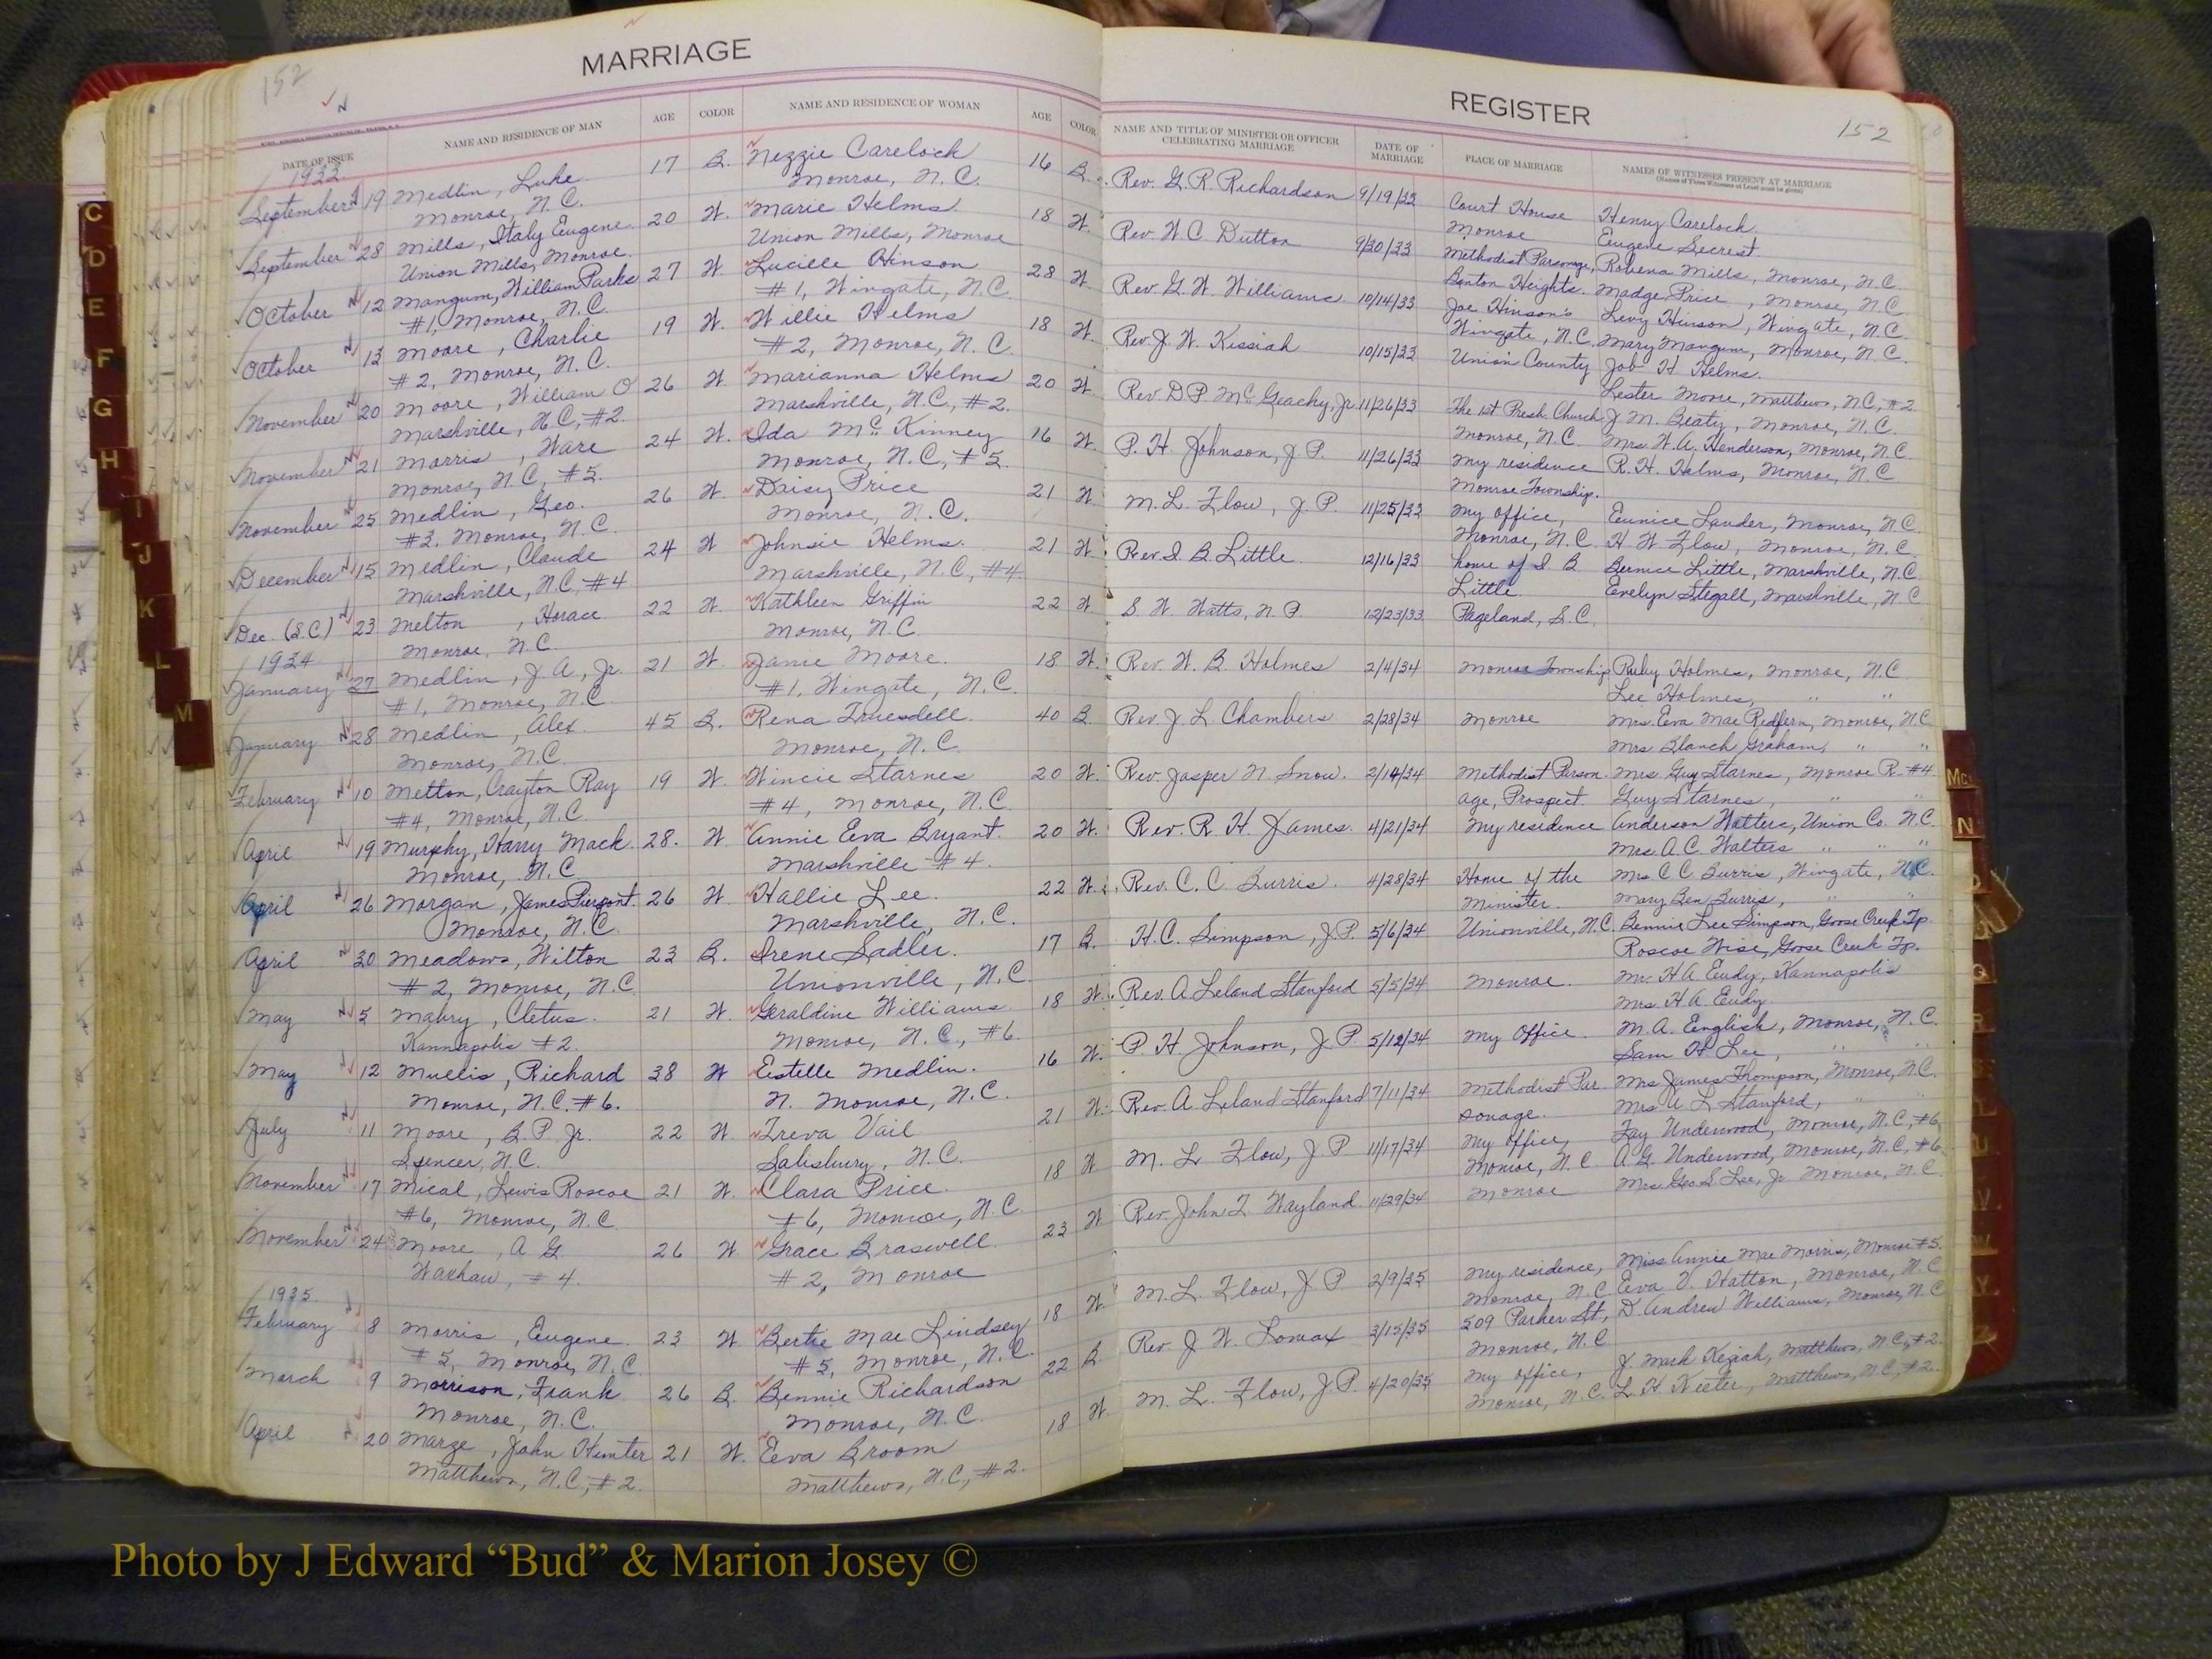 152
MARRIAGE
DATE OF ISSUE NAME AND RESIDENCE OF MAN AGE COLOR NAME AND RESIDENCE OF WOMAN AGE COLOR
1933
September 19 Medlin, Luke 17 B. Nezzie Carelock 16 B.
Monroe, N.C. Monroe, N.C.
September 28 Mills, Italy Eugene 20 W. Marie Helms 18 W.
Union Mills, Monroe. Union Mills, Monroe
October 12 Mangum, William Parks 27 W Lucille Hinson 28 W.
#1, Monroe, N.C. #1, Wingate, N.C.
October 13 Moore, Charlie 19 W. Willie Helms 18 W.
#2, Monroe, N.C. #2, Monroe, N.C.
November 20 Moore, William O 26 W. Marianna Helms 20 W.
Marshville, N.C, #2. Marshville, N.C., #2.
November 21 Morris, Ware 24 W. Ida McKinney 16 W.
Monroe, N.C, #5. Monroe, N.C., #5.
November 25 Medlin, Geo. 26 W. Daisy Price 21 W.
#3, Monroe, N.C. Monroe, N.C.
December 15 Medlin, Claude 24 W Johnsie Helms. 21 W.
Marshville, N.C, #4 Marshville, N.C., #4
Dec. (S.C.) 23 Melton, Horace 22 W. Kathleen Griffin 22 W.
Monroe, N.C. Monroe, N.C.
1934
January 27 Medlin, J.A., Jr. 21 W. Janie Moore. 18 W.
#1, Monroe, N.C #1, Wingate, N.C.
January 28 Medlin, Alex. 45 B. Rena Truesdell. 40 B.
Monroe, N.C. Monroe, N.C.
February 10 Melton, Crayton Ray 19 W. Wincie Starnes 20 W.
#4, Monroe, N.C. #4, Monroe, N.C.
April 19 Murphy, Harry Mack. 28. W. Annie Eva Bryant. 20 W.
Monroe, N.C. Marshville #4.
April 26 Morgan, James 26 W. Hallie Lee 22 W.
Monroe, N.C. Marshville, N.C.
April 30 Meadows, Wilton 23 B. Irene Sadler. 17 B.
#2, Monroe, N.C Unionville, N.C.
May 5 Mabry, Cletus. 21 W. Geraldine Williams 18 W.
Kannapolis #2. Monroe, N.C., #6.
May 12 Mullis, Richard 38 W Estelle Medlin. 16 W.
Monroe, N.C. #6. N. Monroe, N.C.
July 11 Moore, B.P. Jr. 22 W. Treva Vail 21 W.
Spencer, N.C. Salisbury, N.C.
November 17 Mical, Lewis Roscoe 21 W. Clara Price. 18 W
#6, Monroe, N.C. #6, Monroe, N.C.
November 24 Moore, A G 26 W Grace Braswell 23 W
Waxhaw, #4. #2, Monroe
1935.
February 8 Morris, Eugene 23 W Bertie Mae Lindsey 18 W.
#5, Monroe, N.C. #5, Monroe, N.C.
March 9 Morrison, Frank 26 B. Bennie Richardson 22 B
Monroe, N.C. Monroe, N.C.
April 20 Marze, John Hunter 21 W. Eva Broom 18 W.
Matthews, N.C., #2. Matthews, N.C., #2.
REGISTER
152
NAME AND TITLE OF MINISTER OR OFFICER CELEBRATING MARRIAGE DATE OF MARRIAGE PLACE OF MARRIAGE NAMES OF WITNESSES PRESENT AT MARRIAGE
(Names of Three Witnesses at Least must be given)
Rev. G.R. Richardson 9/19/33 Court House Henry Carelock
Monroe Eugene Secrest.
Rev. W.C. Dutton 9/30/33 Methodist Parsonage, Robena Mills, Monroe, N.C.
Benton Heights. Madge Price, Monroe, N.C.
Rev. G.W. Williams. 10/14/33 Joe Hinson's Levy Hinson, Wingate, N.C.
Wingate, N.C. Mary Mangum, Monroe, N.C.
Rev. J.W. Kissiah 10/15/33 Union County Job H Helms.
Lester Moore, Matthews, N.C., #2.
Rev D.P. McGeachy, Jr. 11/26/33 The 1st Presb. Church J.M. Beaty, Monroe, N.C.
Monroe, N.C. Mrs W.A. Henderson, Monroe, N.C.
P.H. Johnson, J.P. 11/26/33 My residence R.H. Helms, Monroe, N.C
Monroe Township.
M.L. Flow, J.P. 11/25/33 My office, Eunice Lauder, Monroe, N.C.
Monroe, N.C. H.W. Flow, Monroe, N.C.
Rev. I.B. Little 12/16/33 home of I B Bernice Little, Marshville, N.C.
Little Evelyn Stegall, Marshville, N.C
S W. Watts, N.P. 12/23/33 Pageland, S.C.
Rev. W.B. Holmes 2/4/34 Monroe Township Ruby Holmes, Monroe, N.C
Lee Holmes, " "
Rev. J L Chambers 2/28/34 Monroe Mrs. Eva Mae Redfern, Monroe, N.C
Mrs Blanch Graham, " "
Rev. Jasper N. Snow. 2/14/34 Methodist Parson- Mrs. Guy Starnes, Monroe R. #4
age, Prospect. Guy Starnes, " "
Rev. R.H. James. 4/21/34 My residence Anderson Walters, Union Co. N.C.
Mrs. A.C. Walters " " "
Rev. C.C. Burris. 4/28/34 Home of the Mrs C C Burris, Wingate, N.C.
Minister. Mary Ben Burris, " "
H.C. Simpson, J.P. 5/6/34 Unionville, N.C. Bennie Lee Simpson, Goose Creek Tp.
Roscoe Wise, Goose Creek Tp.
Rev. A Leland Stanford 5/5/34 Monroe. Mr. H A. Eudy, Kannapolis
Mrs. H A. Eudy
P.H. Johnson, J.P 5/12/34 My Office. M.A. English, Monroe, N.C.
Sam H Lee, " "
Rev. A. Leland Stanford 7/11/34 Methodist Par- Mrs James Thompson, Monroe, N.C.
sonage. Mrs A L Stanford, " "
M.L. Flow, J.P 11/17/34 My office, Fay Underwood, Monroe, N.C., #6,
Monroe, N.C. A.G. Underwood, Monroe, N.C., #6.
Rev. John T. Wayland. 11/29/34 Monroe Mrs Geo S. Lee, Jr. Monroe, N.C.
M.L. Flow, J.P 2/9/35 My residence, Miss Annie Mae Morris, Monroe #5.
Monroe, N.C. Eva V. Hatton, Monroe, N.C
Rev J.W. Lomax 3/15/35 509 Parker St, D. Andrew Williams, Monroe, N.C
Monroe, N.C
M.L. Flow, J.P. 4/20/35 My office, J. Mark Keziah, Matthews, N.C., #2.
Monroe, N.C. L.H. Keeter, Matthews, N.C., #2.
C
D
E
F
G
H
I
J
K
L
M
Mc
N
Q
R
U
V
Y
Photo by J Edward “Bud” & Marion Josey ©